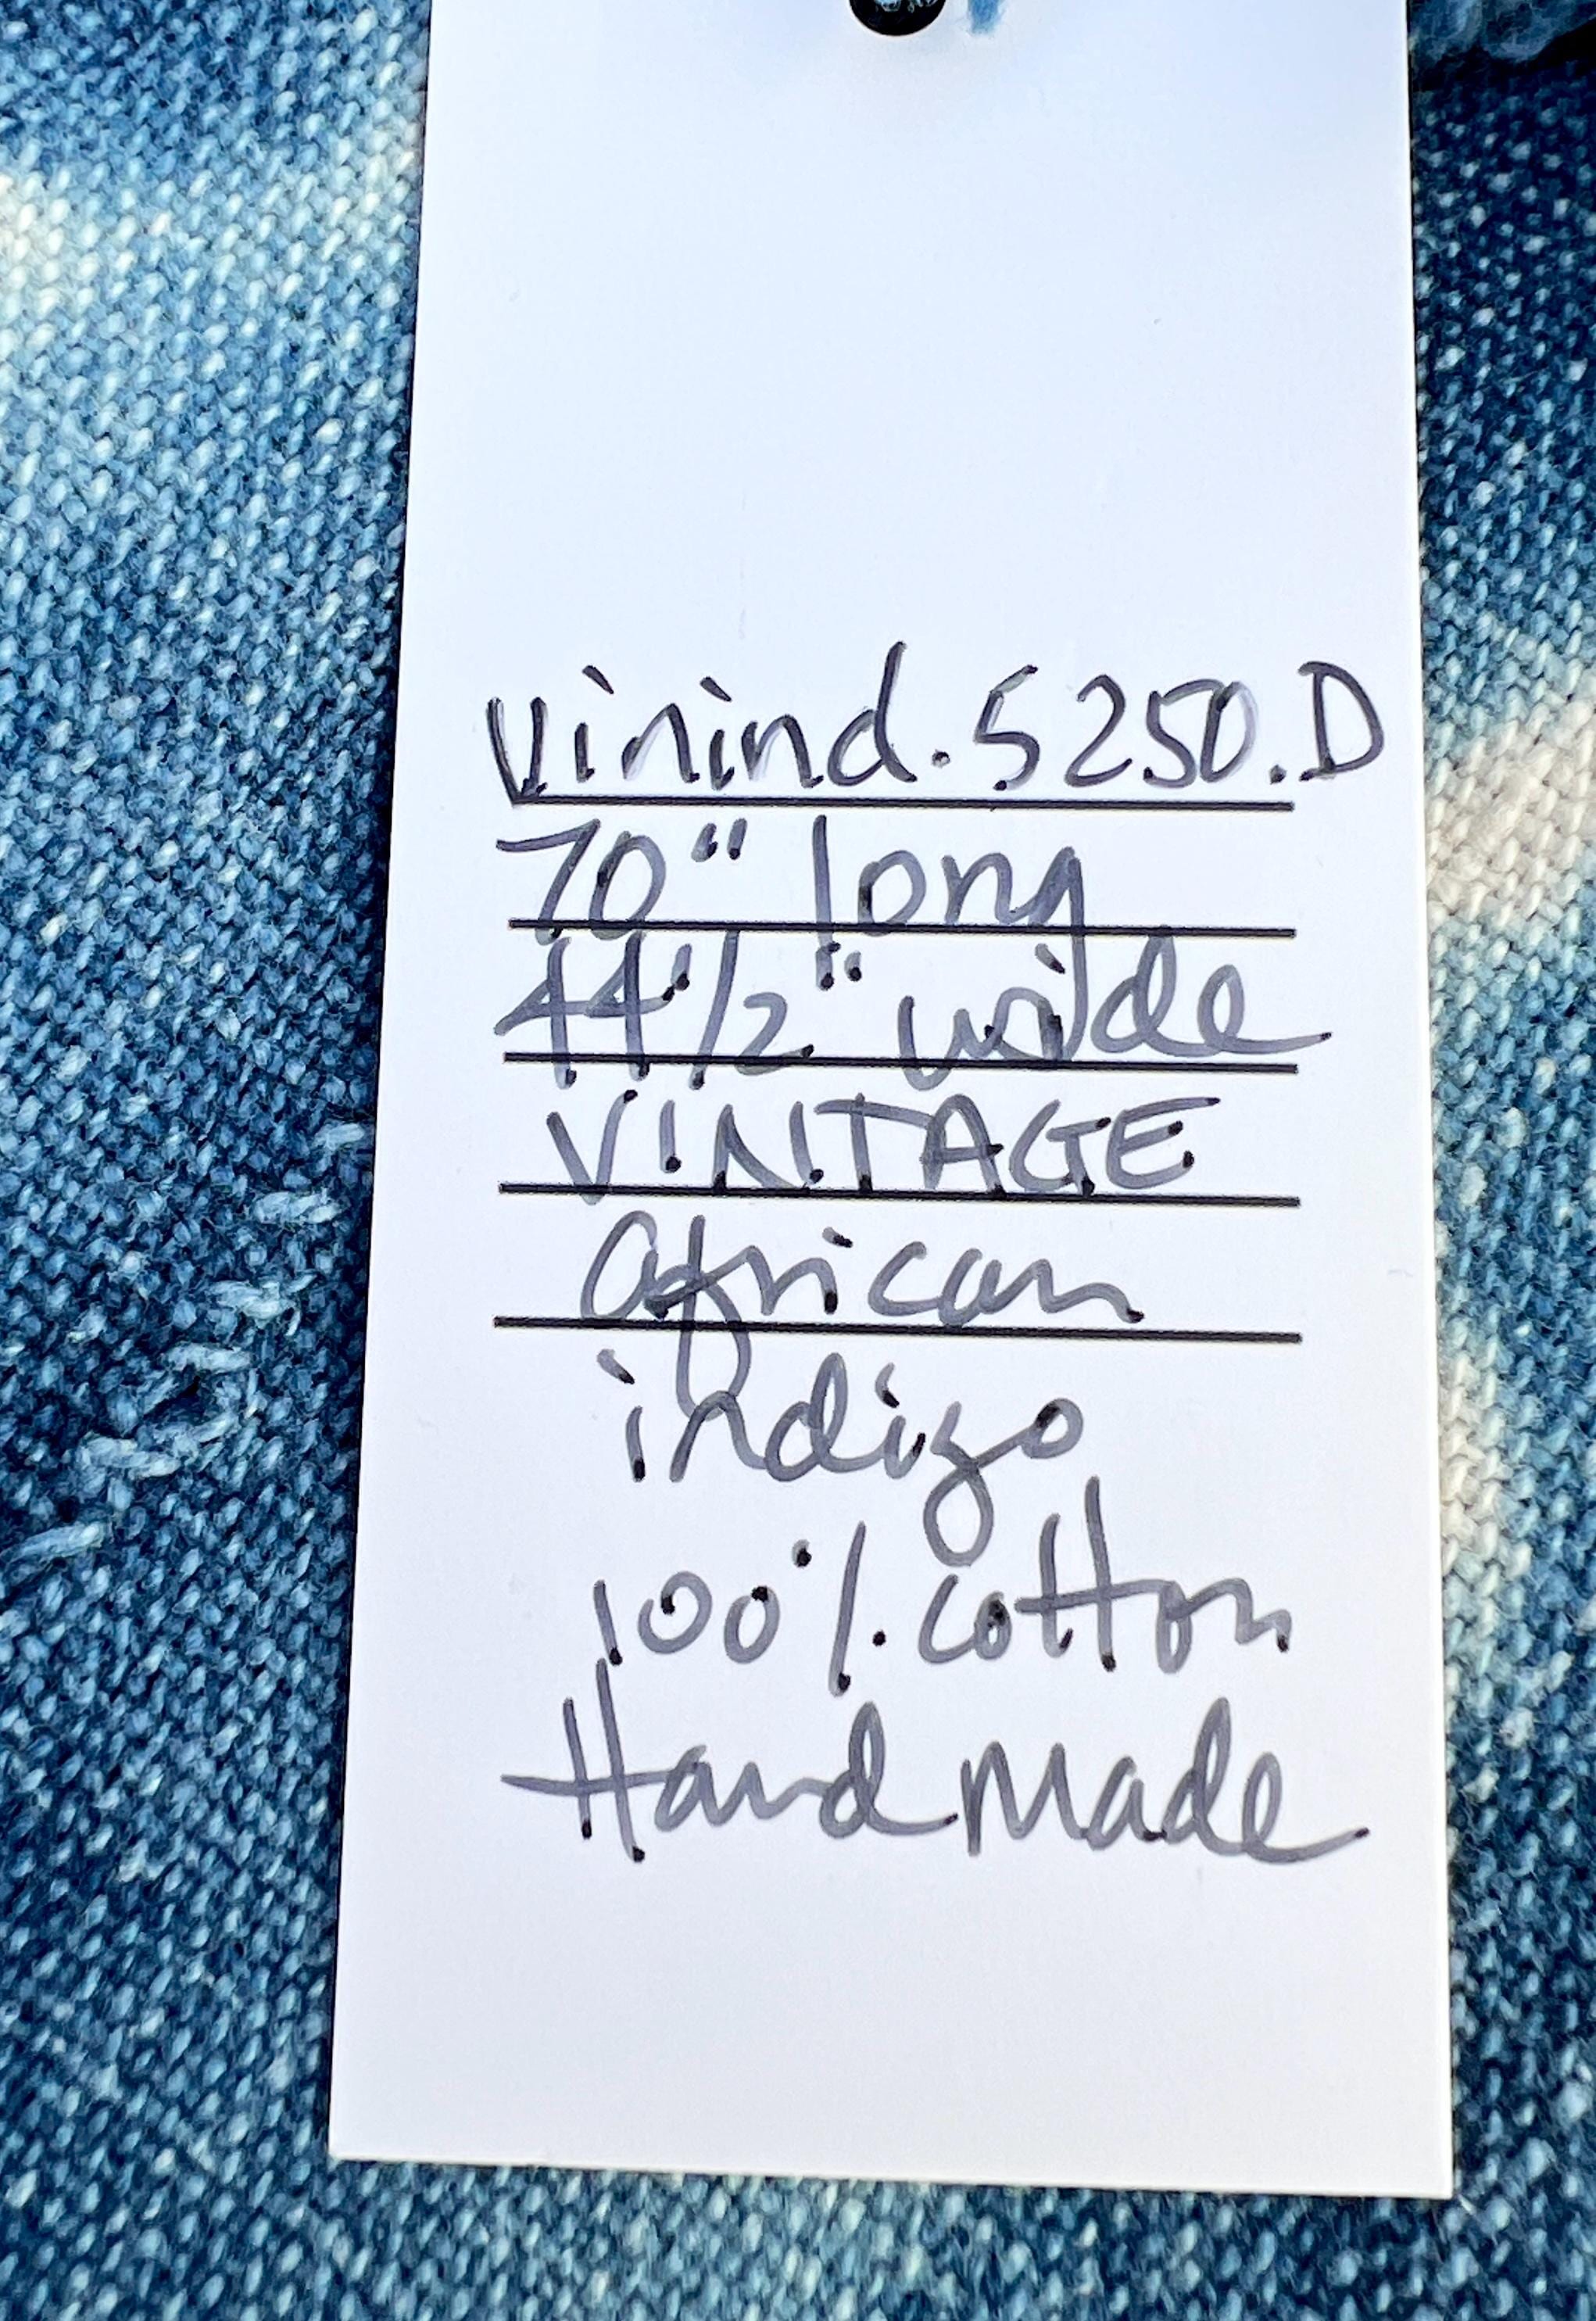 Vinind.5250.D
70" long
44 1/2" wide
VINTAGE
african
indigo
100% cotton
Hand Made